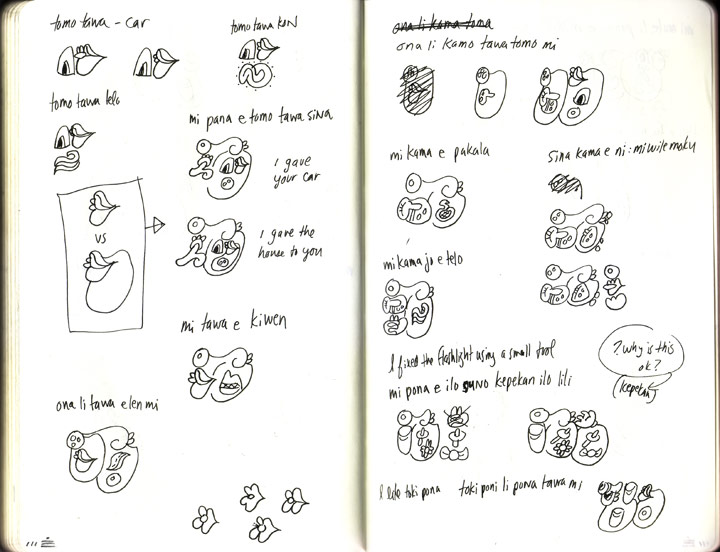 tomo tawa - car
tomo tawa telo
vs
tomo tawa KON
mi pana e tomo tawa sina
I gave
your car
I gave the
house to you
mi tawa e kiwen
ona li tawa e len mi
ona li kama toma
ona li kama tawa tomo mi
mi kama e pakala
sina kama e ni: mi wile moku
mi kama jo e telo
I fixed the flashlight using a small tool
mi pona e ilo suno kepekan ilo lili
? why is this
ok?
(kepekan)
I like toki pona
toki poni li pona tawa mi